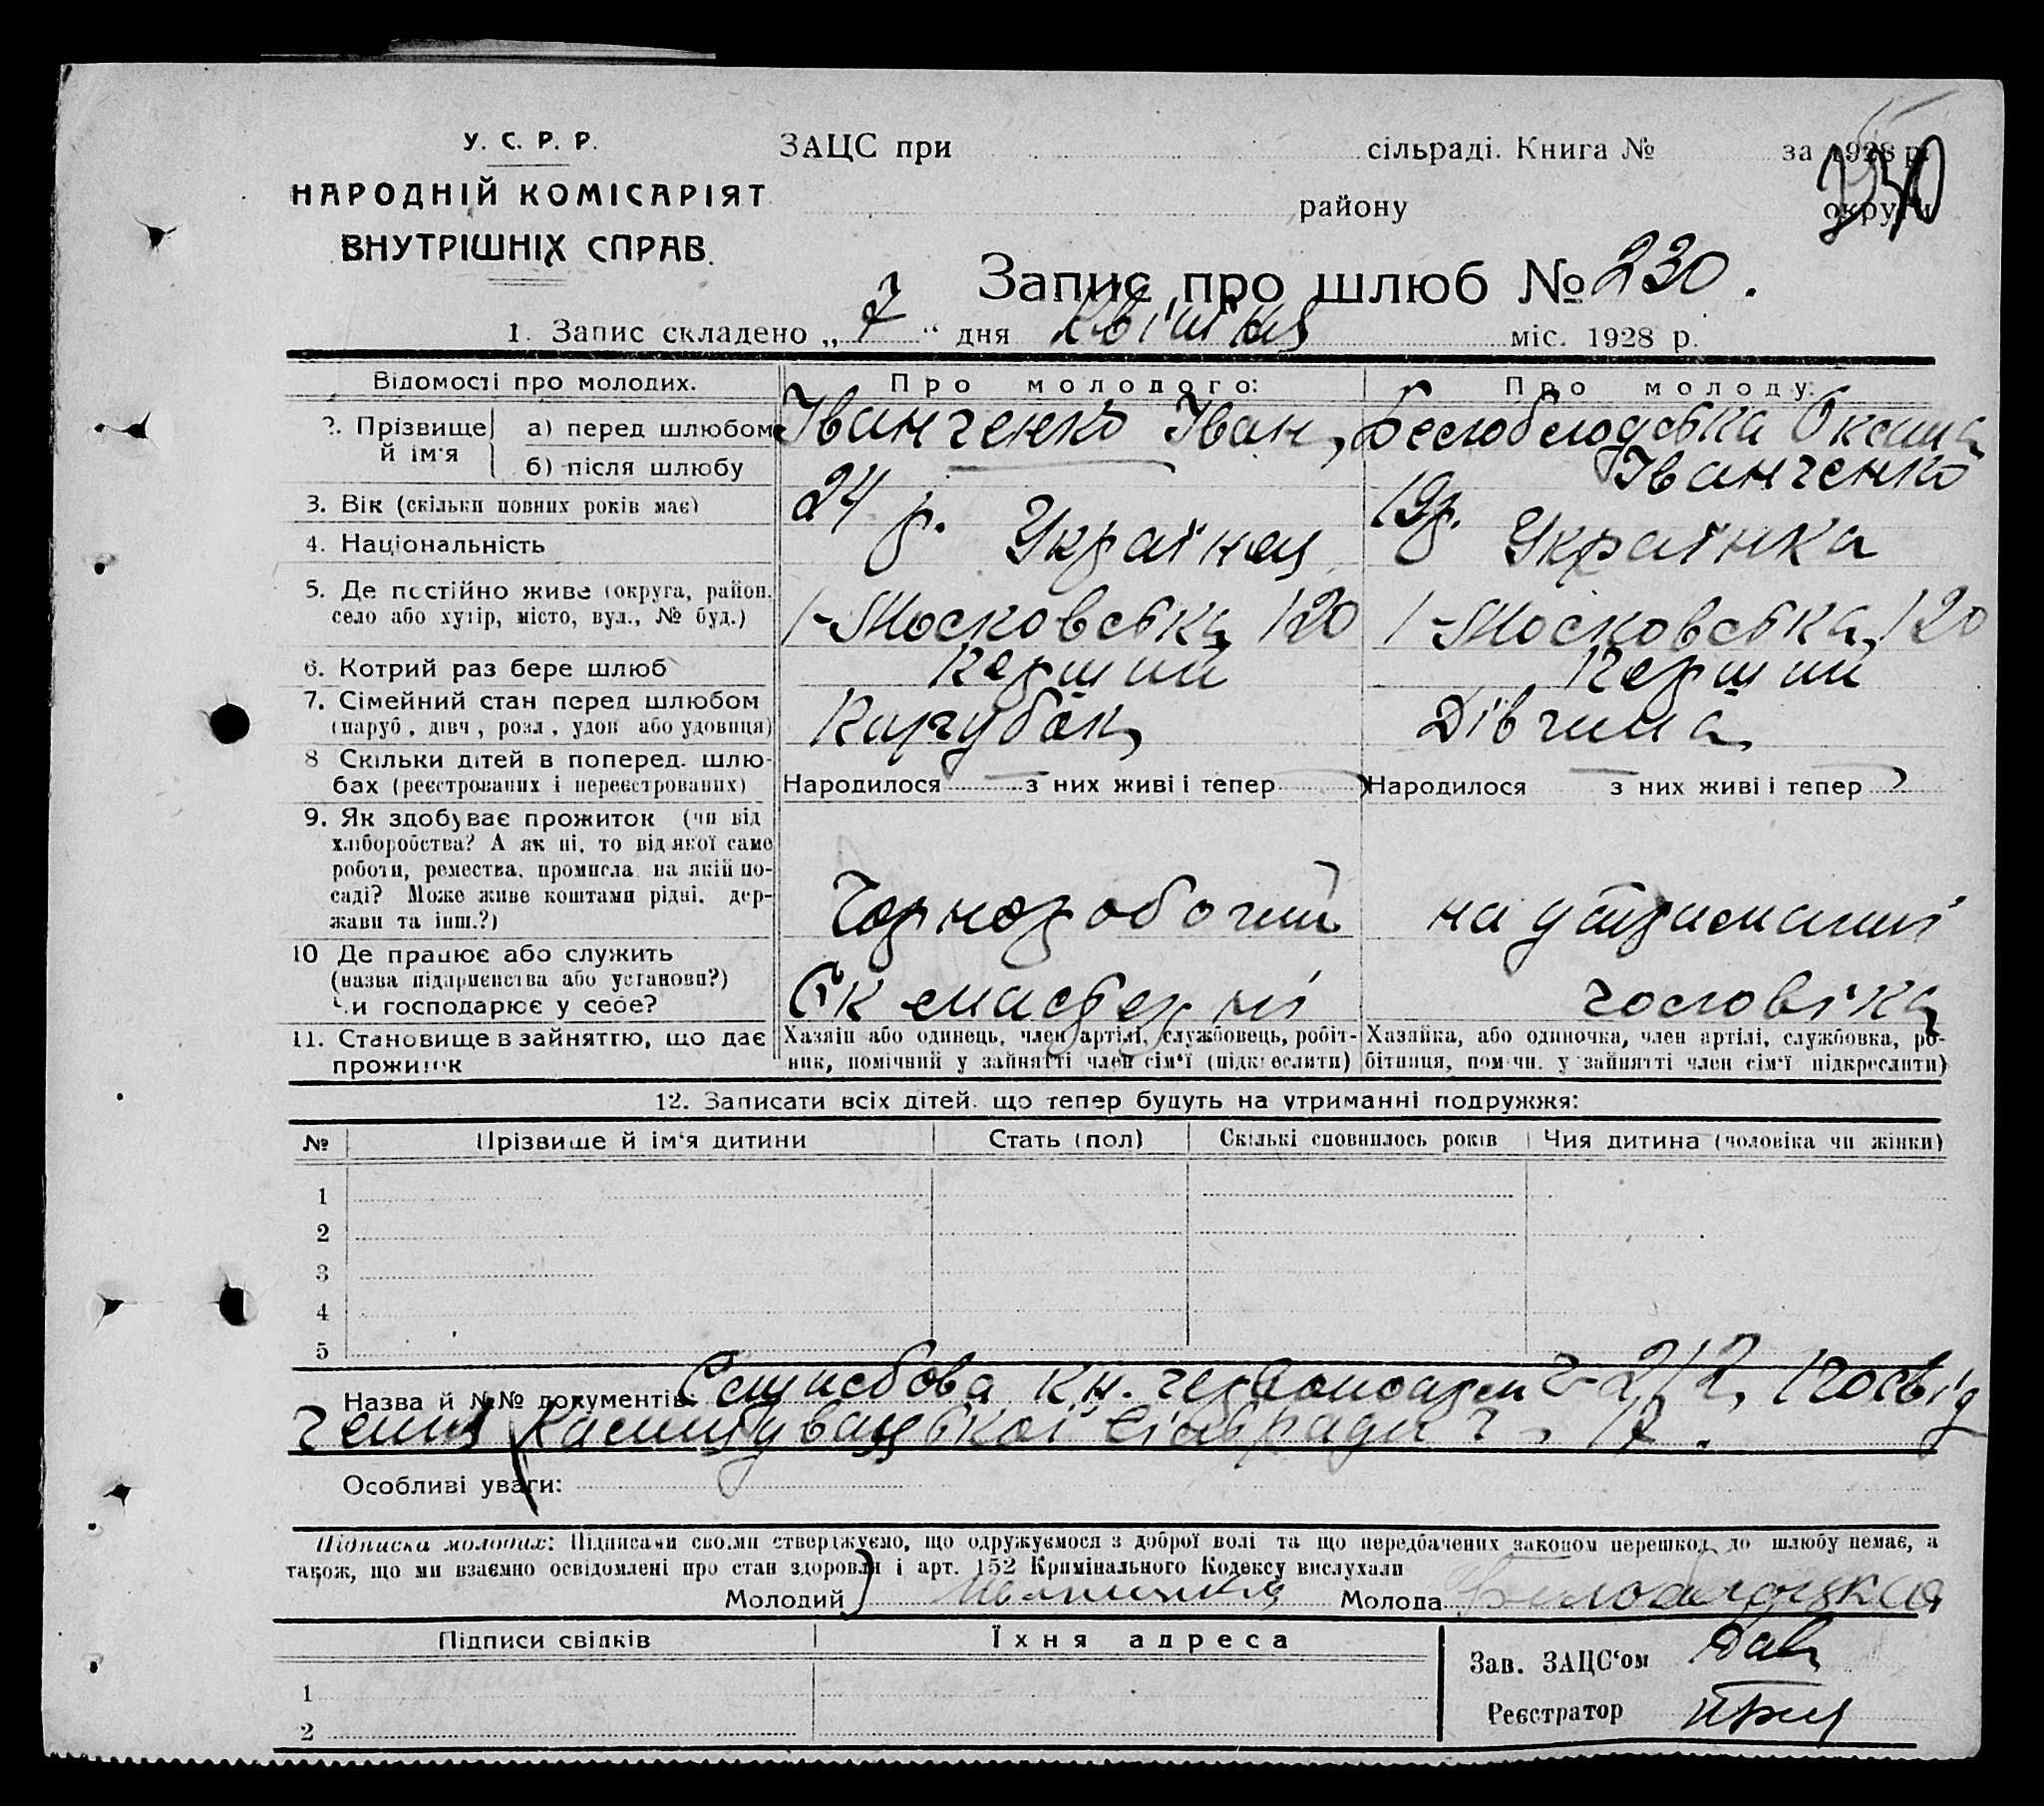 У. С. Р. Р.
НАРОДНІЙ КОМІСАРІЯТ
ВНУТРІШНІХ СПРАВ.
ЗАЦС при сільраді. Книга № за 1928 р.
району округи
230
Запис про шлюб № 230.
1. Запис складено „7“ дня Квітня міс. 1928 р.
Відомості про молодих. Про молодого: Про молоду:
2. Прізвище й ім'я а) перед шлюбом Іванченко Іван, Белоблодська Оксана
б) після шлюбу Іванченко
3. Вік (скільки повних років має) 24 р. 19 р.
4. Національність Українец Українка
5. Де постійно живе (округа, район, село або хутір, місто, вул., № буд.) 1-Московська 120 1-Московська, 120
6. Котрий раз бере шлюб Перший Перший
7. Сімейний стан перед шлюбом (паруб., дівч., розл., удов. або удовиця) Парубок Дівчина
8 Скільки дітей в поперед. шлюбах (реєстрованих і нереєстрованих) Народилося — з них живі і тепер — Народилося — з них живі і тепер —
9. Як здобуває прожиток (чи від
хліборобства? А як ні, то від якої саме
роботи, ремества, промисла, на якій по-
саді? Може живе коштами рідні, дер-
жави та інш.?) Чорноробочий на утриманні
10 Де працює або служить
(назва підприємства або установи?)
Чи господарює у себе? чоловіка
11. Становище в зайняттю, що дає
прожиток
Хазяін або одинець, член артілі, службовець, робіт-
ник, помічний у зайнятті член сім'ї (підкреслити)
Хазяйка, або одиночка, член артілі, службовка, ро-
бітниця, помічн. у зайнятті член сім'ї підкреслити)
12. Записати всіх дітей, що тепер будуть на утриманні подружжя:
№ Прізвище й ім'я дитини Стать (пол) Скількі сповнилось років Чия дитина (чоловіка чи жінки)
1
2
3
4
5
Назва й №№ документів: Службова кн. ч- 212, Посвід
чення сільради ч. 17.
Особливі уваги:
Підписка молодих: Підписами своїми стверджуємо, що одружуємося з доброї волі та що передбачених законом перешкод до шлюбу немає, а
також, що ми взаємно освідомлені про стан здоровля і арт. 152 Кримінального Кодексу вислухали
Молодий Молода
Підписи свідків Їхня адреса
Зав. ЗАЦС'ом
1
Реєстратор
2